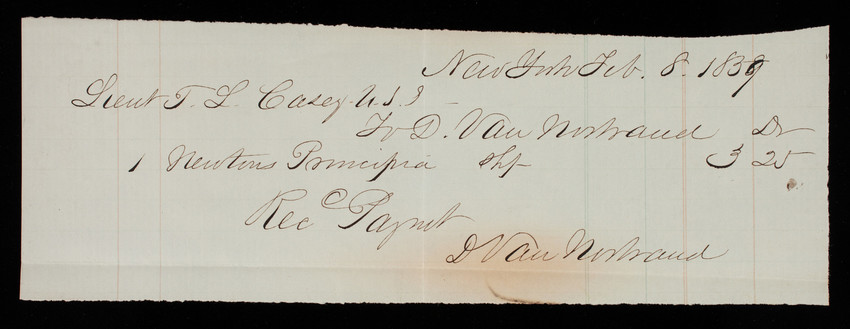 New York Feb. 8. 1839
Lieut T. L. Casey. U. S.
To D. Van Nostrand Dr
1 Newtons Principia shp 3 25
Recc Paymt
D Van Nostrand